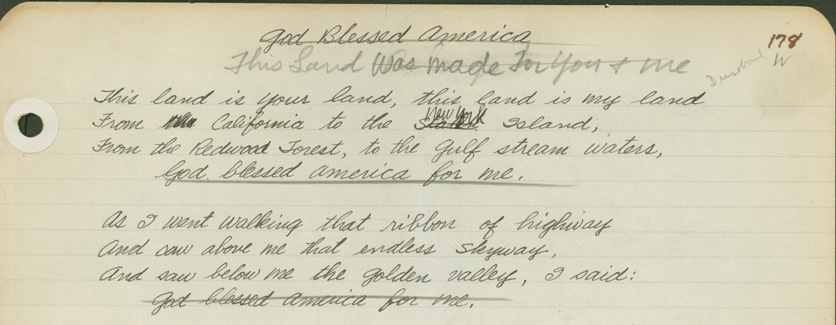 God Blessed America
This Land Was Made For You & me
178
W
This land is your land, this land is my land
From the California to the Staten New York Island,
From the Redwood Forest, to the Gulf stream waters,
God blessed America for me.
As I went walking that ribbon of highway
And saw above me that endless skyway,
And saw below me the golden valley, I said:
God blessed America for me.